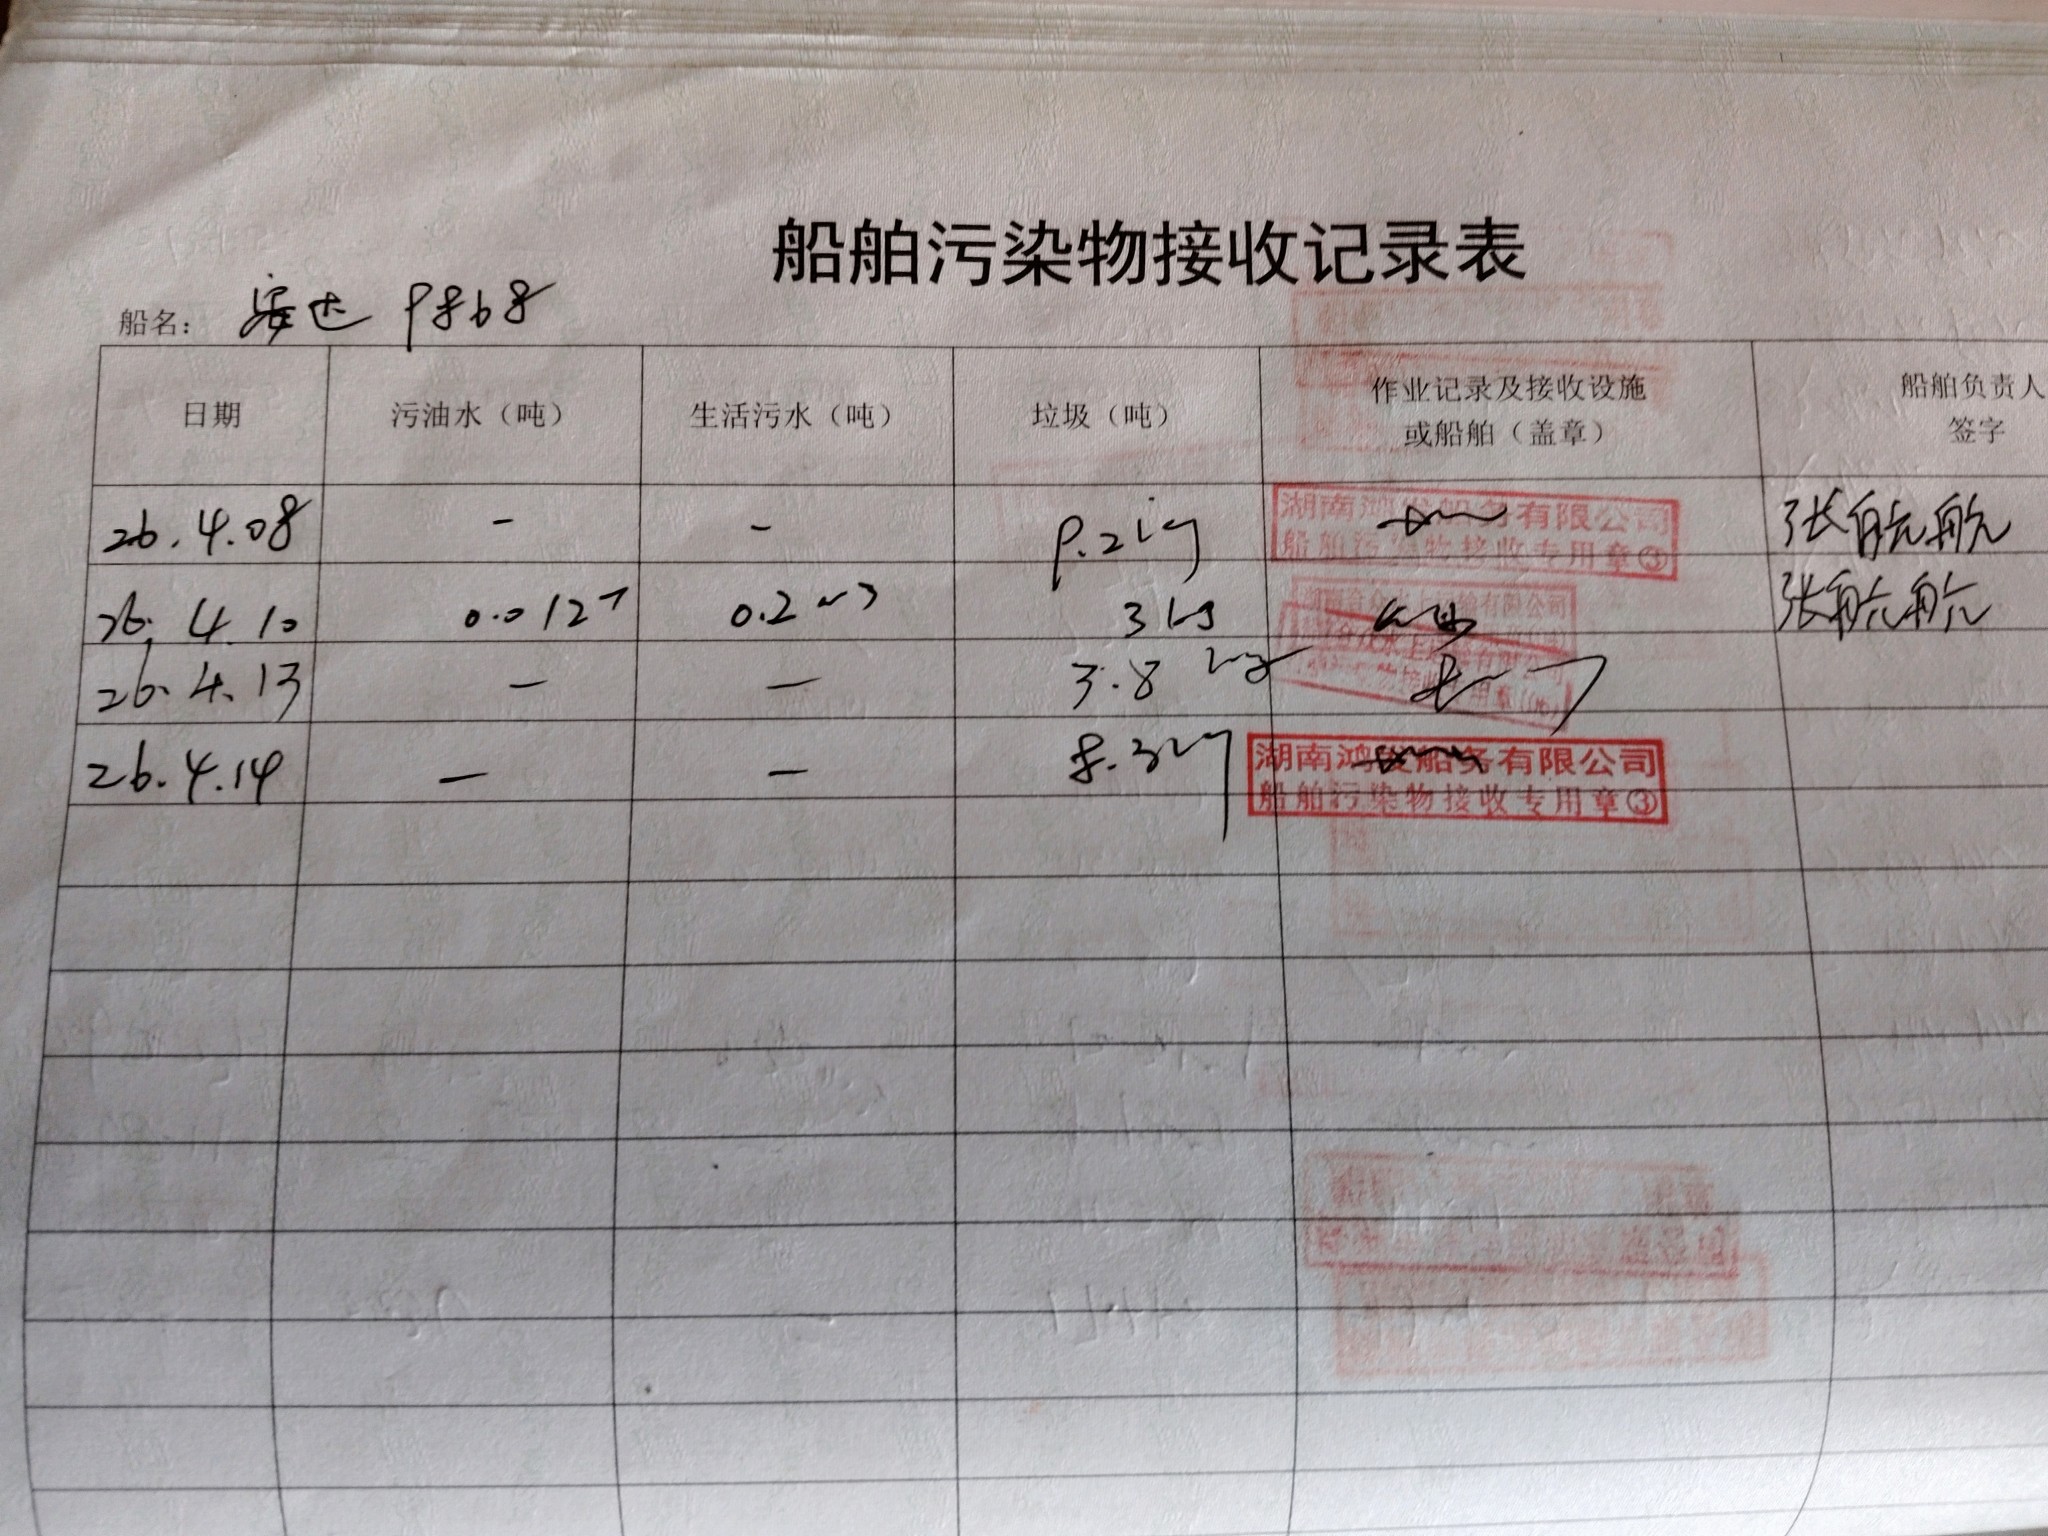 船舶污染物接收记录表
船名: 安达 9868
日期 污油水（吨） 生活污水（吨） 垃圾（吨） 作业记录及接收设施或船舶（盖章） 船舶负责人签字
26.4.08 - - 9.2kg 湖南鸿发船务有限公司 船舶污染物接收专用章③ 张航航
26.4.10 0.012T 0.2m3 3kg 张航航
26.4.13 - - 3.8kg
26.4.14 - - 8.3kg 湖南鸿发船务有限公司 船舶污染物接收专用章③